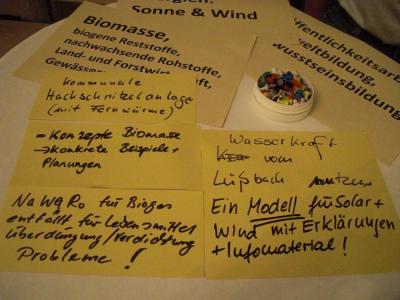 Sonne & Wind
Biomasse,
biogene Reststoffe,
nachwachsende Rohstoffe,
Land- und Forstwirt
Gewässer
ffentlichkeitsarb
eltbildung,
wusstseinsbildung
Kommunale
Hackschnitzelanlage
(mit Fernwärme)
→ Konzepte Biomasse
→ Konkrete Beispiele +
Planungen
NaWaRo für Biogas
entfällt für Lebensmittel
Überdüngung/Verdichtung
Probleme!
Wasserkraft
vom
Lußbach nutzen
Ein Modell für Solar +
Wind mit Erklärungen
+ Infomaterial!